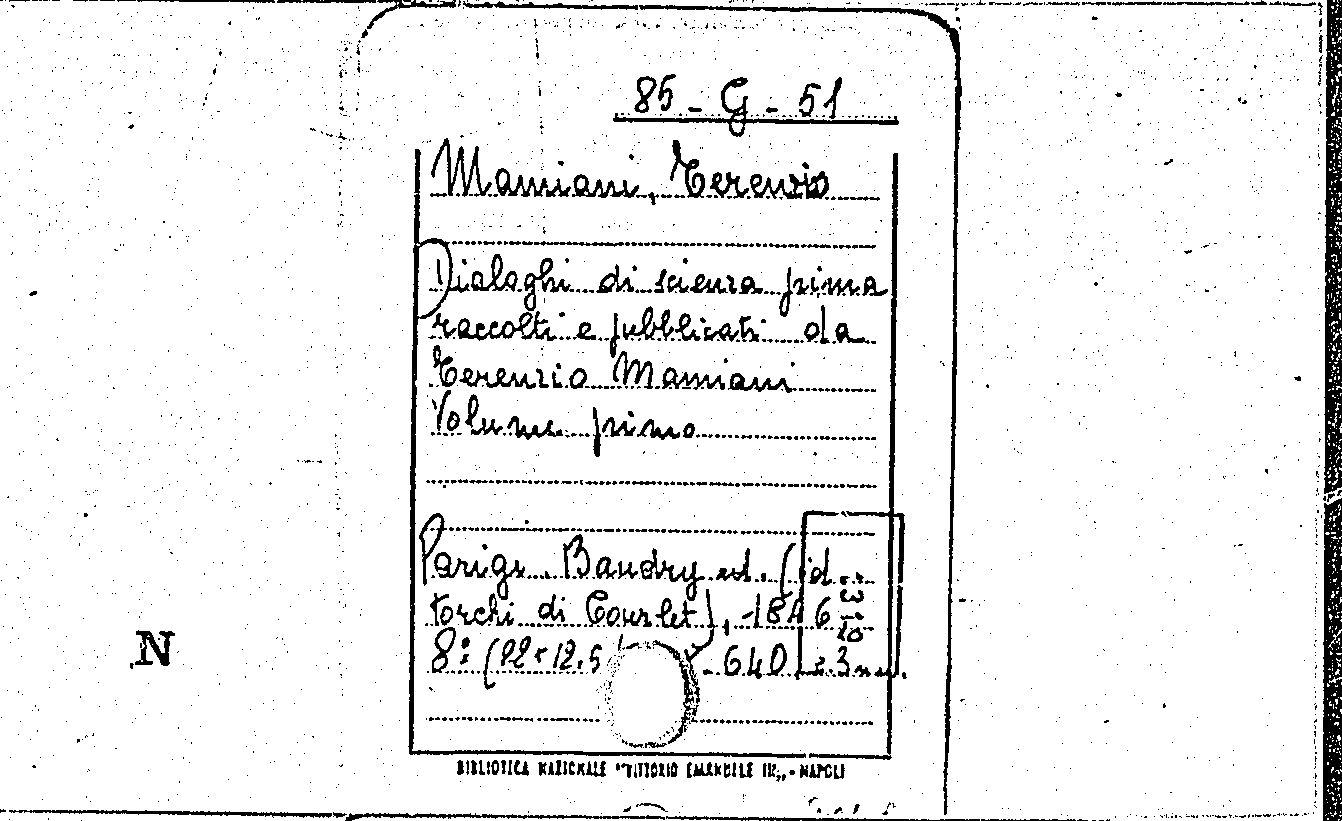 85 - G - 51
Mamiani, Terenzio
Dialoghi di scienza prima
raccolti e pubblicati da
Terenzio Mamiani
Volume primo
Parigi, Baudry ed. (id.
torchi di Courlet), 1846
8: (22 x 12.5 640 e 3 nn.
N
BIBLIOTECA NAZIONALE "VITTORIO EMANUELE III„ - NAPOLI